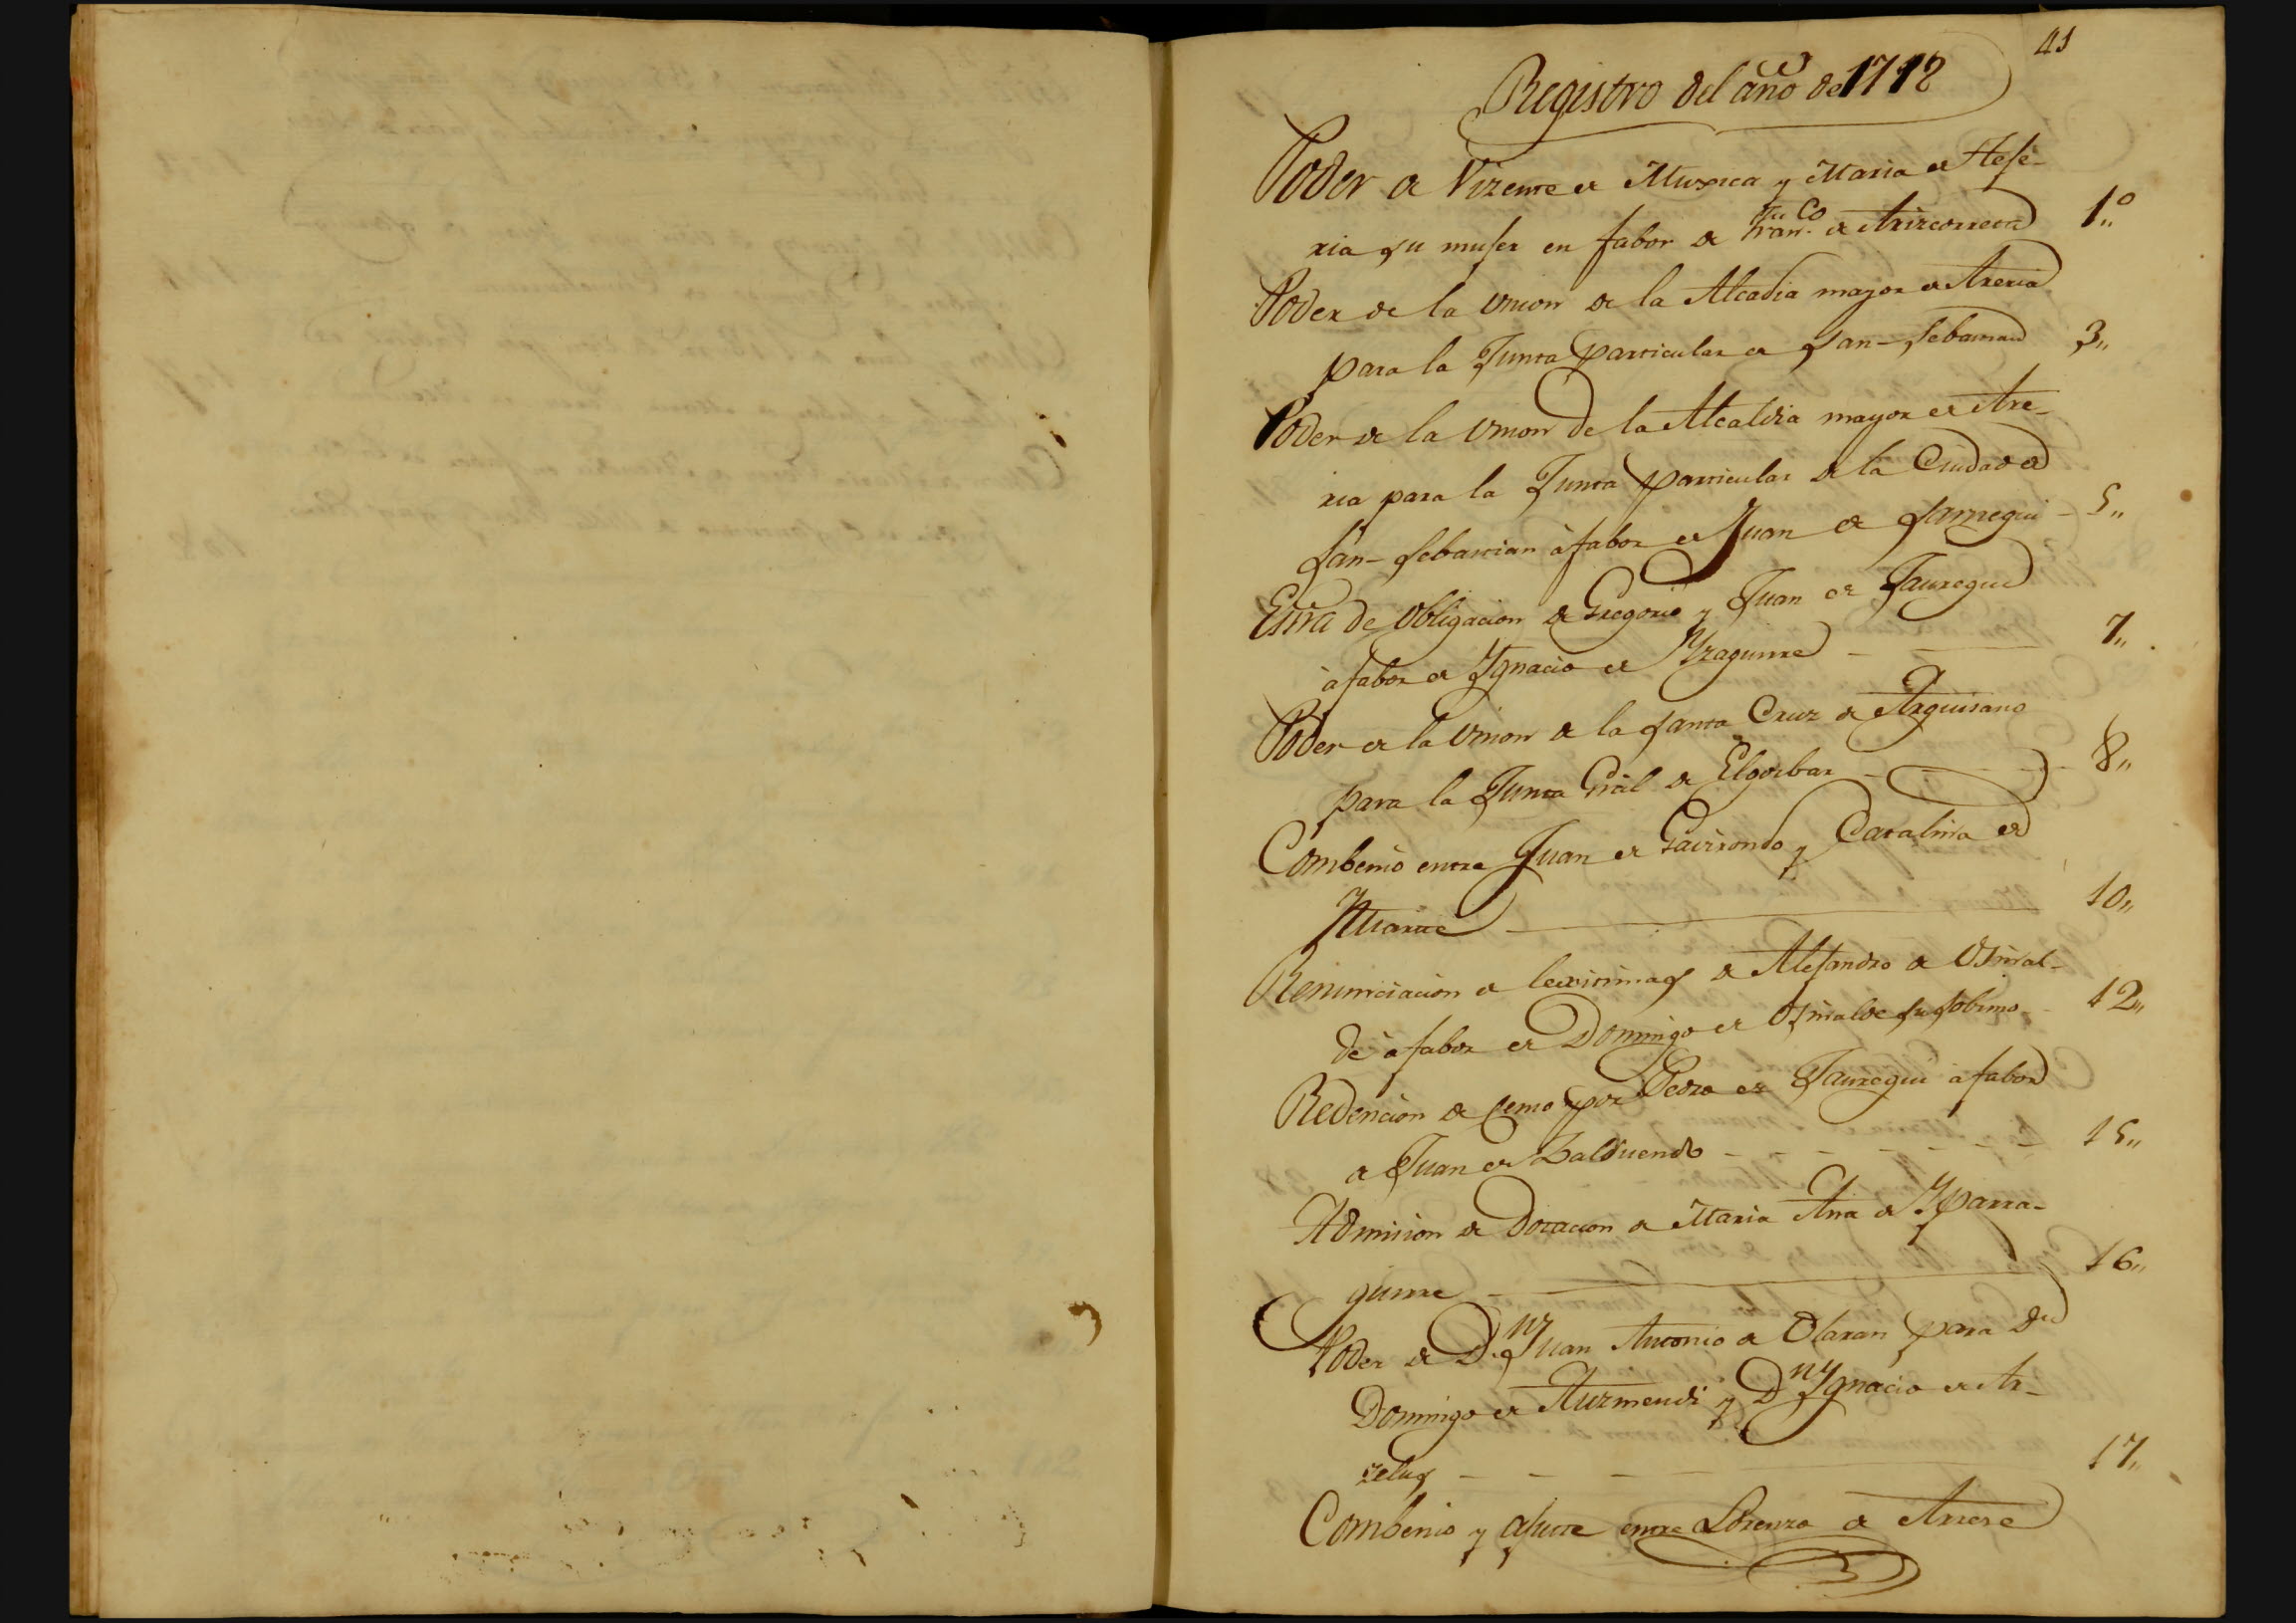 41
Registro del año de 1718
Poder de Vizente de Muxica y Maria de Atese-
ria su muger en fabor de Fran.co de Arizcorreta 1,,o
Poder de la Union de la Alcadia mayor de Areria
para la Junta particular de San-Sebastian 3,,
Poder de la Union de la Alcaldia mayor de Are-
ria para la Junta particular de la Ciudad de
San-Sebastian à fabor de Juan de Jarregui - 5,,
Esñra de obligacion de Gregorio y Juan de Jauregui
à fabor de Ygnacio de Yzaguirre - - - 7,,
Poder de la Union de la Santa Cruz de Arguisano
para la Junta Gràl de Elgoibar - - - 8,,
Combenio entre Juan de Gavirondo y Catalina de
Yttarte - 10,,
Renunciacion de lexitimas de Alejandro de Usural-
de à fabor de Domingo de Usuralde su sobrino - 12,,
Redencion de censo por Pedro de Jauregui à fabor
de Juan de Zalduendo - - - - - - 15,,
Admision de Dotacion de Maria Ana de Yparra-
guirre - 16,,
Poder de Dn Juan Antonio de Olaran para Dn
Domingo de Aurmendi y Dn Ygnacio de Ar-
zelus - - - 17,,
Combenio y ajuste entre Lorenzo de Arrese